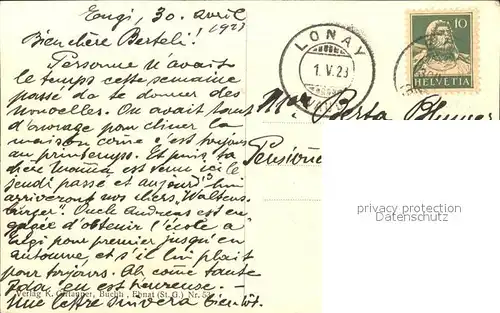 Engi, 30. avril
1923
Bien chère Berteli!
Personne n'avait
le temps cette semaine
passé da te donner des
nouvelles. On avait tant
d'ouvrage pour
maison come c'est toujours
au printemps. Et puis ta
chère mama est venu ici le
jeudi passé et aujourd'hui
arriveront nos chers
Oncle Andreas est en-
gagée d'obtenir l'école a
Engi pour premier jusqu'en
automne, et s'il lui plait
pour toujours. Ah come tante
Ida en est heureuse. –
Verlag K. Buchh., Ebnat (St. G.) Nr. 53
Une lettre suivera bientôt.
LONAY
1.V.23
10
HELVETIA
Berta Blumer
Pension
privacy protection
Datenschutz